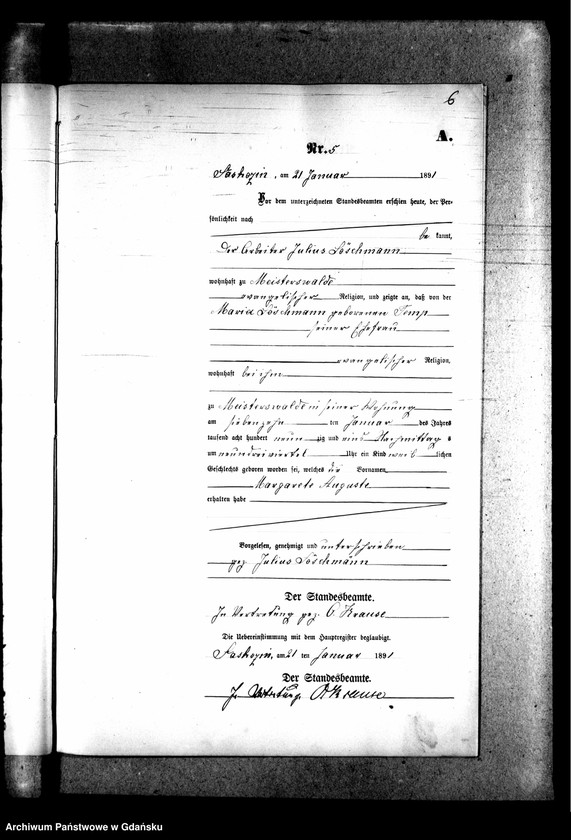 6
A.
Nr. 5
Saskozin, am 21 Januar 1891
Vor dem unterzeichneten Standesbeamten erschien heute, der Per-
sönlichkeit nach
be kannt,
Der Arbeiter Julius Löschmann
wohnhaft zu Meisterswalde
evangelischer Religion, und zeigte an, daß von der
Maria Löschmann geborenen
seiner Ehefrau
evangelischer Religion,
wohnhaft bei ihm
zu Meisterswalde in seiner Wohnung
am siebenzehn ten Januar des Jahres
tausend acht hundert neun zig und eins Nachmittag s
um neundreiviertel Uhr ein Kind weib lichen
Geschlechts geboren worden sei, welches die Vornamen
Margarete Auguste
erhalten habe
Vorgelesen, genehmigt und unterschrieben
gez. Julius Löschmann
Der Standesbeamte.
In Vertretung gez. O. Krause
Die Uebereinstimmung mit dem Hauptregister beglaubigt.
Saskozin, am 21 ten Januar 1891
Der Standesbeamte.
In Vertretung. O. Krause
Archiwum Państwowe w Gdańsku